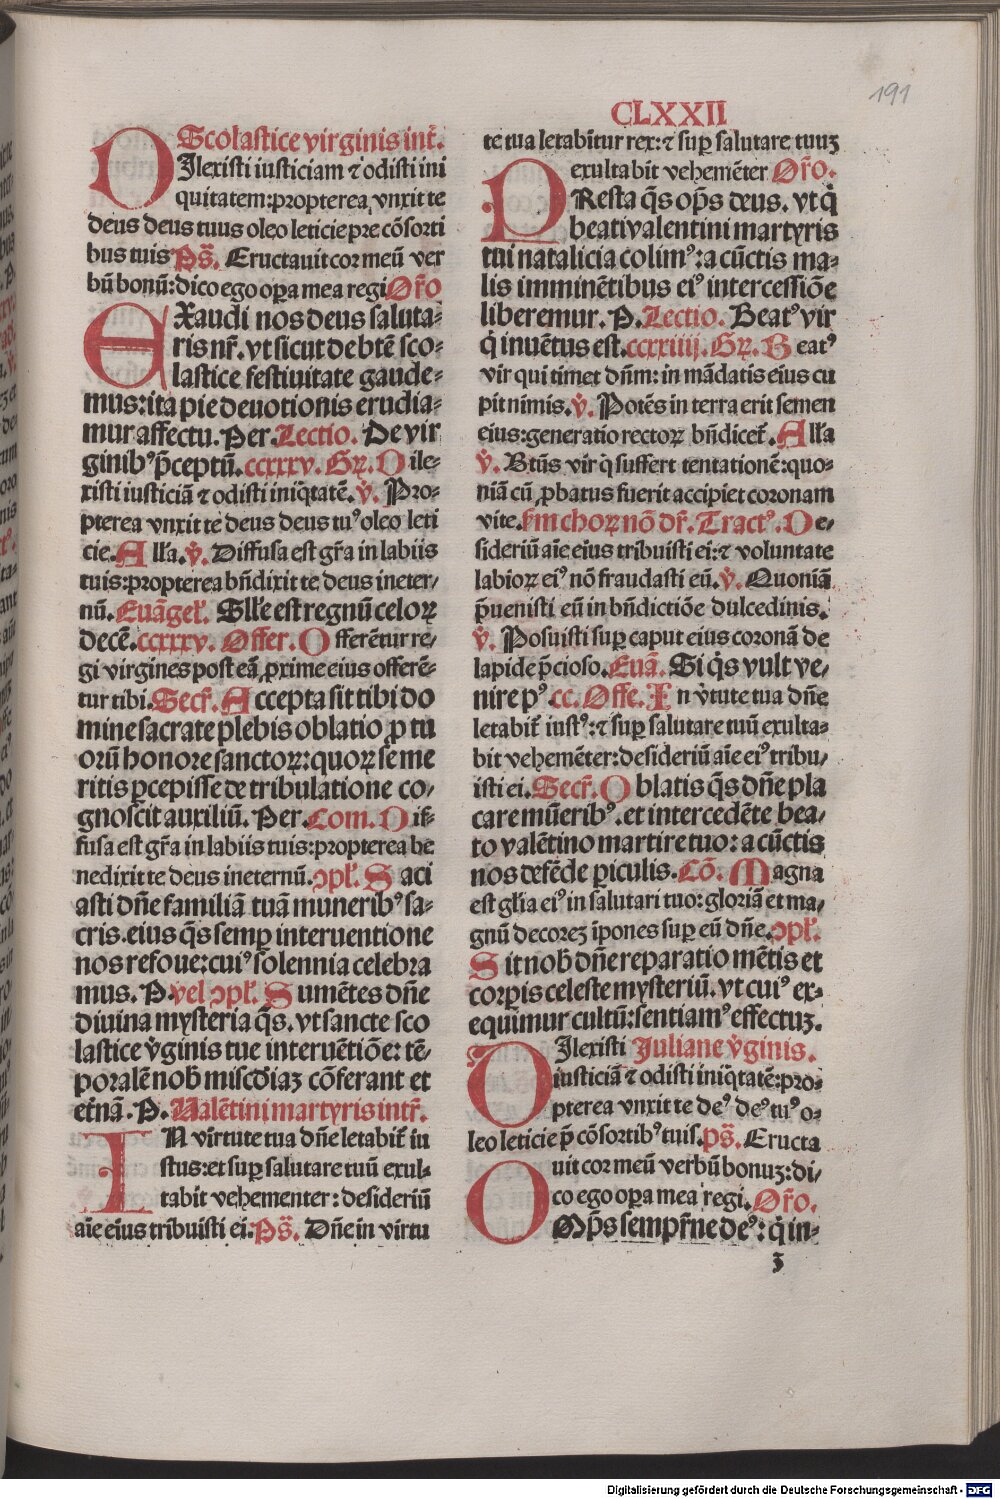 191
CLXXII
Scolastice virginis intr̄.
DIlexisti iusticiam ⁊ odisti ini
quitatem: propterea vnxit te
deus deus tuus oleo leticie pre cōsorti
bus tuis Ps̄. Eructauit cor meū ver
bū bonū: dico ego oꝑa mea regi Or̄o
EXaudi nos deus saluta⸗
ris nr̄. vt sicut de btē sco⸗
lastice festiuitate gaude⸗
mus: ita pie deuotionis erudia⸗
mur affectu. Per. Lectio. De vir
ginibꝰ p̄ceptū. ccxxxv. Gꝝ. Dile⸗
xisti iusticiā ⁊ odisti iniq̇tatē. v̇. Pro⸗
pterea vnxit te deus deus tuꝰ oleo leti
cie. Alla. v̇. Diffusa est gr̄a in labiis
tuis: propterea bn̄dixit te deus in eter⸗
nū. Euāgel̄. Sil̄e est regnū celoꝝ
decē. ccxxxv. Offer. Offerētur re⸗
gi virgines post eā ꝓxime eius offerē⸗
tur tibi. Secr̄. Accepta sit tibi do
mine sacrate plebis oblatio ꝓ tu
orū honore sanctoꝝ: quoꝝ se me
ritis ꝑcepisse de tribulatione co⸗
gnoscit auxiliū. Per. Com. Dif⸗
fusa est gr̄a in labiis tuis: propterea be
nedixit te deus in eternū. ꝯpl̄. Saci
asti dn̄e familiā tuā muneribꝰ sa⸗
cris. eius q̄s semꝑ interuentione
nos refoue: cuiꝰ solennia celebra
mus. P. vel ꝯpl̄. Sumētes dn̄e
diuina mysteria q̄s. vt sancte sco
lastice v̇ginis tue interuētiōe: tē⸗
poralē nob̄ mis̄cdiaꝫ cōferant et
et̄nā. P. Ualētini martyris intr̄.
IN virtute tua dn̄e letabit̄ iu
stus: et suꝑ salutare tuū exul⸗
tabit vehementer: desideriū
aīe eius tribuisti ei. Ps̄. Dn̄e in virtu
te tua letabitur rex: ⁊ suꝑ salutare tuuꝫ
exultabit vehemēter Or̄o.
PResta q̄s op̄s deus. vt q̇
beati valentini martyris
tui natalicia colimꝰ: a cūctis ma⸗
lis imminētibus eiꝰ intercessiōe
liberemur. P. Lectio. Beatꝰ vir
q̇ inuētus est. ccxxiiij. Gꝝ. Beatꝰ
vir qui timet dn̄m: in mādatis eius cu
pit nimis. v̇. Potēs in terra erit semen
eius: generatio rectoꝝ bn̄dicet̄. Alla
v̇. Btūs vir q̇ suffert tentationē: quo⸗
niā cū ꝓbatus fuerit accipiet coronam
vite. km̄ choꝝ nō dr̄. Tractꝰ. De⸗
sideriū aīe eius tribuisti ei: ⁊ voluntate
labioꝝ eiꝰ nō fraudasti eū. v̇. Quoniā
p̄uenisti eū in bn̄dictiōe dulcedinis.
v̇. Posuisti suꝑ caput eius coronā de
lapide p̄cioso. Euā. Si q̇s vult ve⸗
nire pꝰ. cc. Offe. In v̇tute tua dn̄e
letabit̄ iustꝰ: ⁊ suꝑ salutare tuū exulta⸗
bit vehemēter: desideriū aīe eiꝰ tribu⸗
isti ei. Secr̄. Oblatis q̄s dn̄e pla
care mūeribꝰ. et intercedēte bea⸗
to valētino martire tuo: a cūctis
nos defēde ꝑiculis. Cō. Magna
est gl̄ia eiꝰ in salutari tuo: gloriā et ma⸗
gnū decoreꝫ īpones suꝑ eū dn̄e. ꝯpl̄.
Sit nob̄ dn̄e reparatio mētis et
corꝑis celeste mysteriū. vt cuiꝰ ex⸗
equimur cultū: sentiamꝰ effectuꝫ.
DIlexisti Juliane v̇ginis.
iusticiā ⁊ odisti iniq̇tatē: pro⸗
pterea vnxit te deꝰ deꝰ tuꝰ o⸗
leo leticie p̄ cōsortibꝰ tuis. ps̄. Eructa
uit cor meū verbū bonuꝫ: di⸗
co ego oꝑa mea regi. Or̄o.
OMp̄s semꝑr̄ne deꝰ: q̇ in⸗
ꝫ
Digitalisierung gefördert durch die Deutsche Forschungsgemeinschaft - DFG